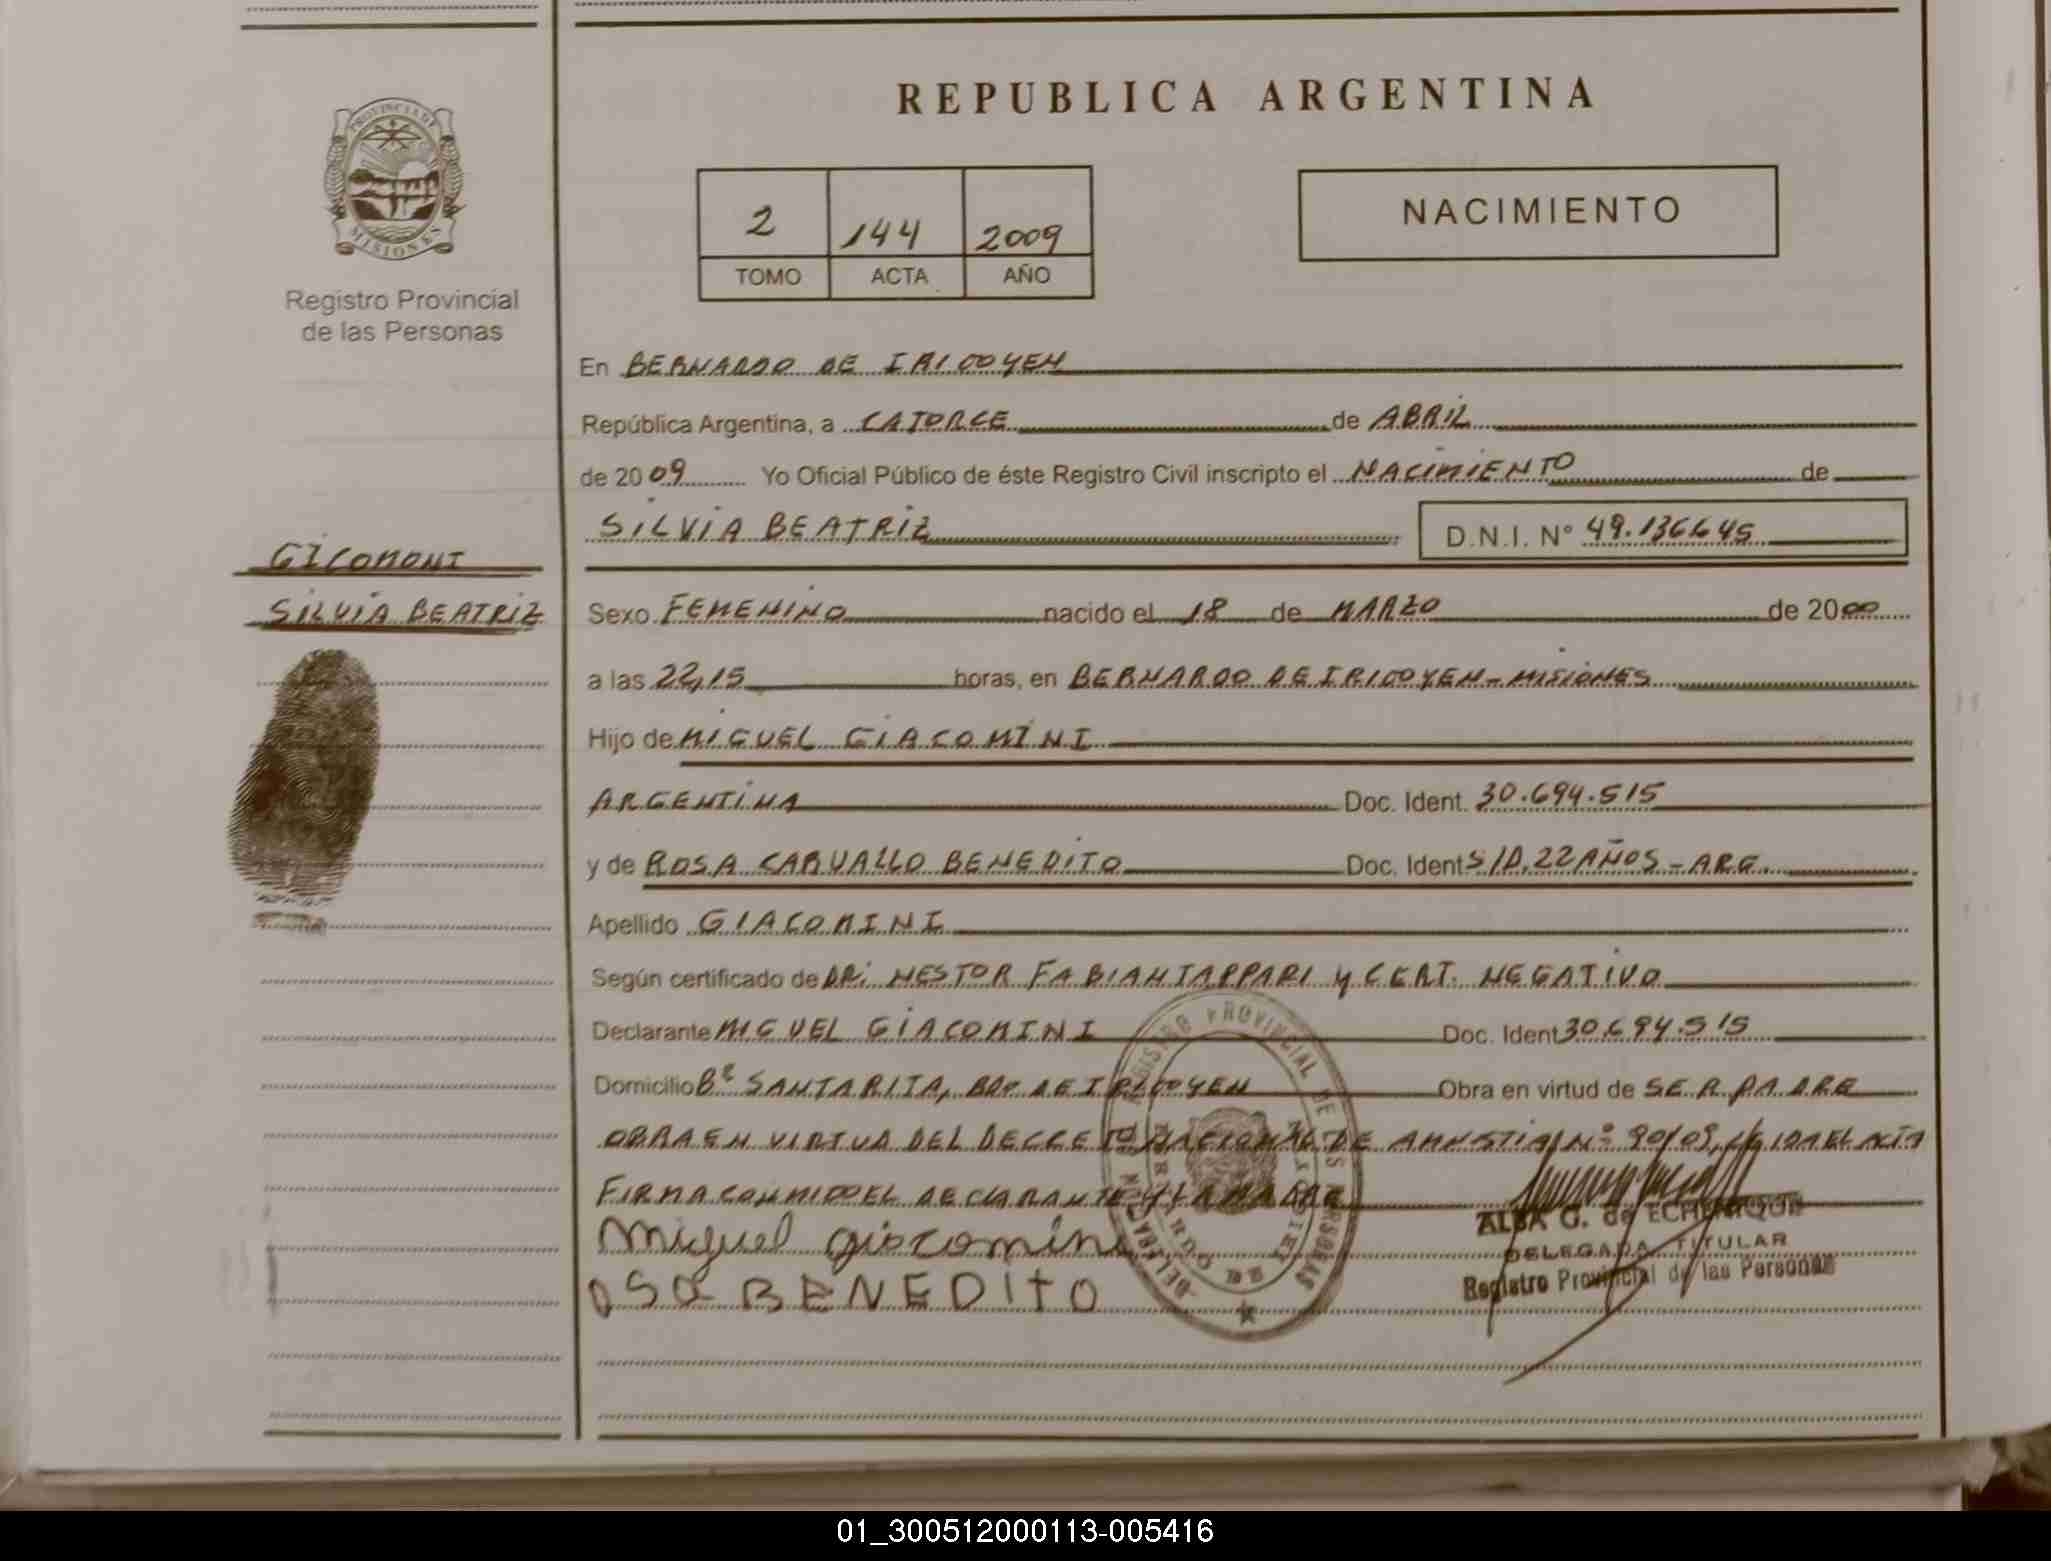 REPUBLICA ARGENTINA
PROVINCIA DE MISIONES
Registro Provincial
de las Personas
2 144 2009
TOMO ACTA AÑO
NACIMIENTO
En BERNARDO DE IRIGOYEN
República Argentina, a CATORCE de ABRIL
de 2009 Yo Oficial Público de éste Registro Civil inscripto el NACIMIENTO de
SILVIA BEATRIZ D.N.I. Nº 49.136645
GICOMONI
SILVIA BEATRIZ
Sexo FEMENINO nacido el 18 de MARZO de 2000
a las 22,15 horas, en BERNARDO DE IRIGOYEN - MISIONES
Hijo de MIGUEL GIACOMINI
ARGENTINA Doc. Ident. 30.694.515
y de ROSA CARVALLO BENEDITO Doc. Ident S/D. 22 AÑOS - ARG.
Apellido GIACOMINI
Según certificado de DR. NESTOR FABIAN TAPPARI y CERT. NEGATIVO
Declarante MIGUEL GIACOMINI Doc. Ident 30.694.515
Domicilio Bº SANTA RITA, BDO. DE IRIGOYEN Obra en virtud de SER PADRE
OBRA EN VIRTUD DEL DECRETO NACIONAL DE AMNISTIA Nº 90/09, LEIDA EL ACTA
FIRMA CONMIGO EL DECLARANTE Y LA MADRE
miguel giacomini
OSA BENEDITO
REGISTRO PROVINCIAL DE LAS PERSONAS
ALBA G. de ECHENIQUE
DELEGADA TITULAR
Registro Provincial de las Personas
01_300512000113-005416